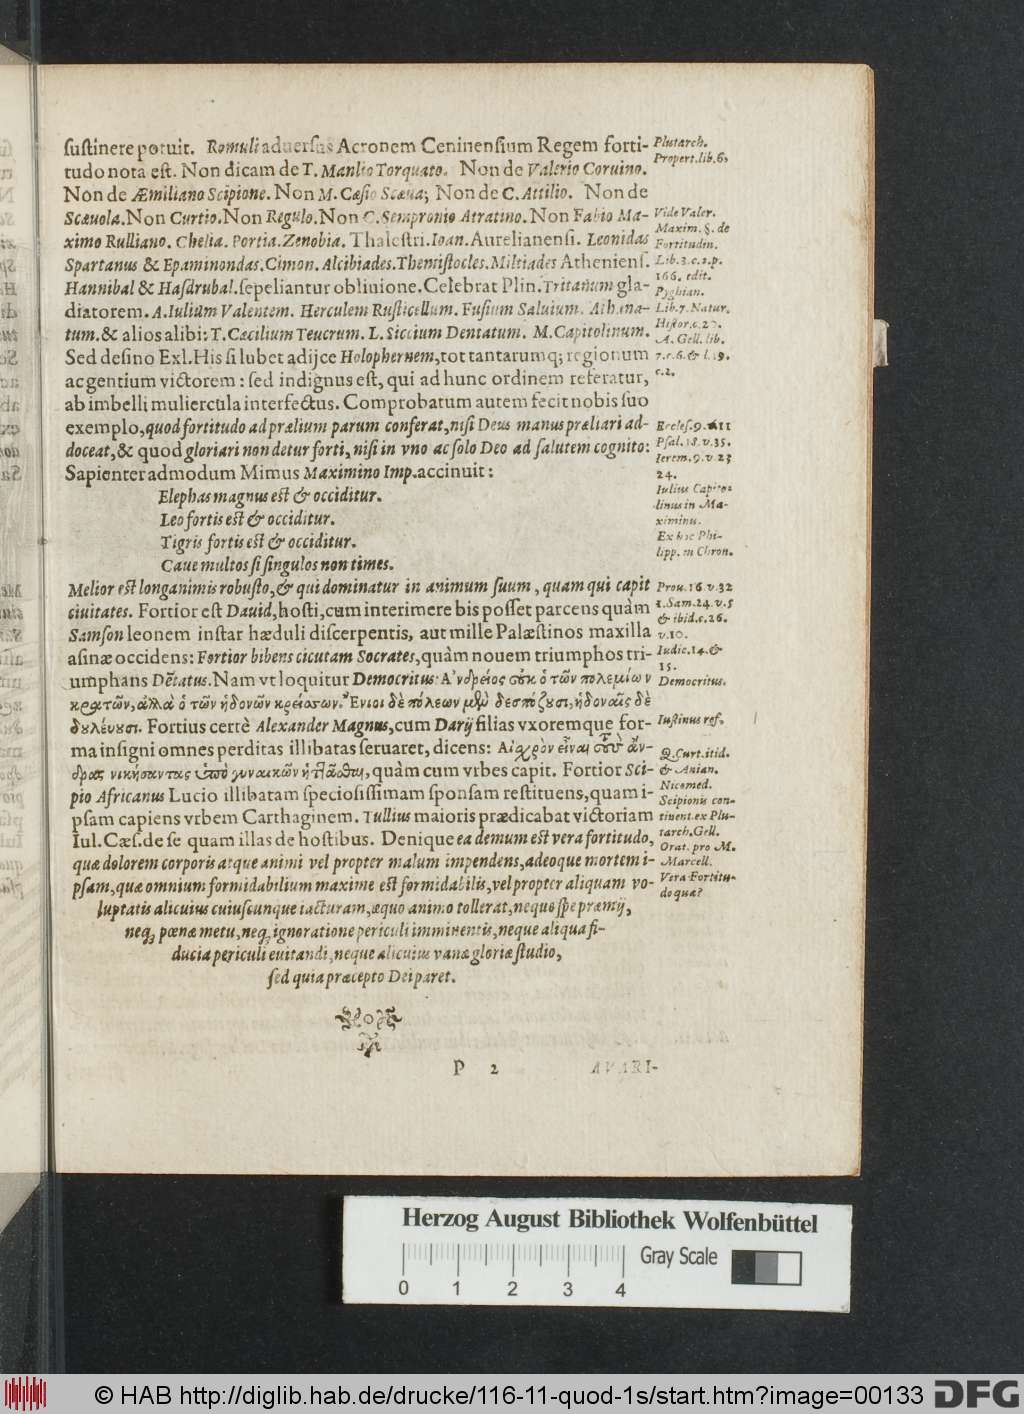 sustinere potuit. Romuli adversus Acronem Ceninensium Regem forti-
tudo nota est. Non dicam de T. Manlio Torquato. Non de Valerio Coruino.
Non de Æmiliano Scipione. Non M. Cæsio Scæua; Non de C. Attilio. Non de
Scæuola. Non Curtio. Non Regulo. Non C. Sempronio Atratino. Non Fabio Ma-
ximo Rulliano. Chelia. Portia. Zenobia. Thalestri. Ioan. Aurelianensi. Leonidas
Spartanus & Epaminondas. Cimon. Alcibiades. Themistocles. Miltiades Atheniens.
Hannibal & Hasdrubal. sepeliantur obliuione. Celebrat Plin. Tritanum gla-
diatorem. A. Iulium Valentem. Herculem Rusticellum. Fusium Saluium. Athana-
tum. & alios alibi: T. Cæcilium Teucrum. L. Siccium Dentatum. M. Capitolinum.
Sed desino Exl. His si lubet adijce Holophernem, tot tantarumq; regionum
ac gentium victorem: sed indignus est, qui ad hunc ordinem referatur,
ab imbelli muliercula interfectus. Comprobatum autem fecit nobis suo
exemplo, quod fortitudo ad prælium parum conferat, nisi Deus manus præliari ad-
doceat, & quod gloriari non detur forti, nisi in vno ac solo Deo ad salutem cognito:
Sapienter admodum Mimus Maximino Imp. accinuit:
Elephas magnus est & occiditur.
Leo fortis est & occiditur.
Tigris fortis est & occiditur.
Caue multos si singulos non times.
Melior est longanimis robusto, & qui dominatur in animum suum, quam qui capit
ciuitates. Fortior est Dauid, hosti, cum interimere bis posset parcens quàm
Samson leonem instar hæduli discerpentis, aut mille Palæstinos maxilla
asinæ occidens: Fortior bibens cicutam Socrates, quàm nouem triumphos tri-
umphans Dẽtatus. Nam vt loquitur Democritus: Ἀνδρεῖος οὐκ ὁ τῶν πολεμίων
κρατῶν, ἀλλὰ ὁ τῶν ἡδονῶν κρείσσων. Ἔνιοι δὲ πόλεων μὲν δεσπόζουσι, ἡδοναῖς δὲ
δουλέυουσι. Fortius certè Alexander Magnus, cum Darij filias vxoremque for-
ma insigni omnes perditas illibatas seruaret, dicens: Αἰσχρὸν εἶναι τοὺς ἄν-
δρας νικήσαντας ὑπὸ γυναικῶν ἡττᾶσθαι, quàm cum vrbes capit. Fortior Sci-
pio Africanus Lucio illibatam speciosissimam sponsam restituens, quam i-
psam capiens vrbem Carthaginem. Tullius maioris prædicabat victoriam
Iul. Cæs. de se quam illas de hostibus. Denique ea demum est vera fortitudo,
quæ dolorem corporis atque animi vel propter malum impendens, adeoque mortem i-
psam, quæ omnium formidabilium maxime est formidabilis, vel propter aliquam vo-
luptatis alicuius cuiuscunque iacturam, æquo animo tollerat, neque spe præmij,
neq; pœnæ metu, neq; ignoratione periculi imminentis, neque aliqua fi-
ducia periculi euitandi, neque alicuius vanæ gloriæ studio,
sed quia præcepto Dei paret.
P 2
AVARI-
Plutarch.
Propert. lib. 6.
Vide Valer.
Maxim. §. de
Fortitudin.
Lib. 3. c. 2. p.
166. edit.
Pyghian.
Lib. 7. Natur.
Histor. c. 20.
A. Gell. lib.
7. c. 6. & l. 19.
c. 2.
Eccles. 9. 11
Psal. 18. v. 35.
Ierem. 9. v 23
24.
Iulius Capito-
linus in Ma-
ximinu.
Ex hoc Phi-
lipp. in Chron.
Prou. 16 v. 32
1. Sam. 24. v. 5
& ibid. c. 26.
v. 10.
Iudic. 14. &
15.
Democritus.
Iustinus ref.
Q. Curt. itid.
& Arian.
Nicomed.
Scipionis con-
tinent. ex Plu-
tarch. Gell.
Orat. pro M.
Marcell.
Vera Fortitu-
do quæ?
Herzog August Bibliothek Wolfenbüttel
Gray Scale
0 1 2 3 4
© HAB http://diglib.hab.de/drucke/116-11-quod-1s/start.htm?image=00133
DFG